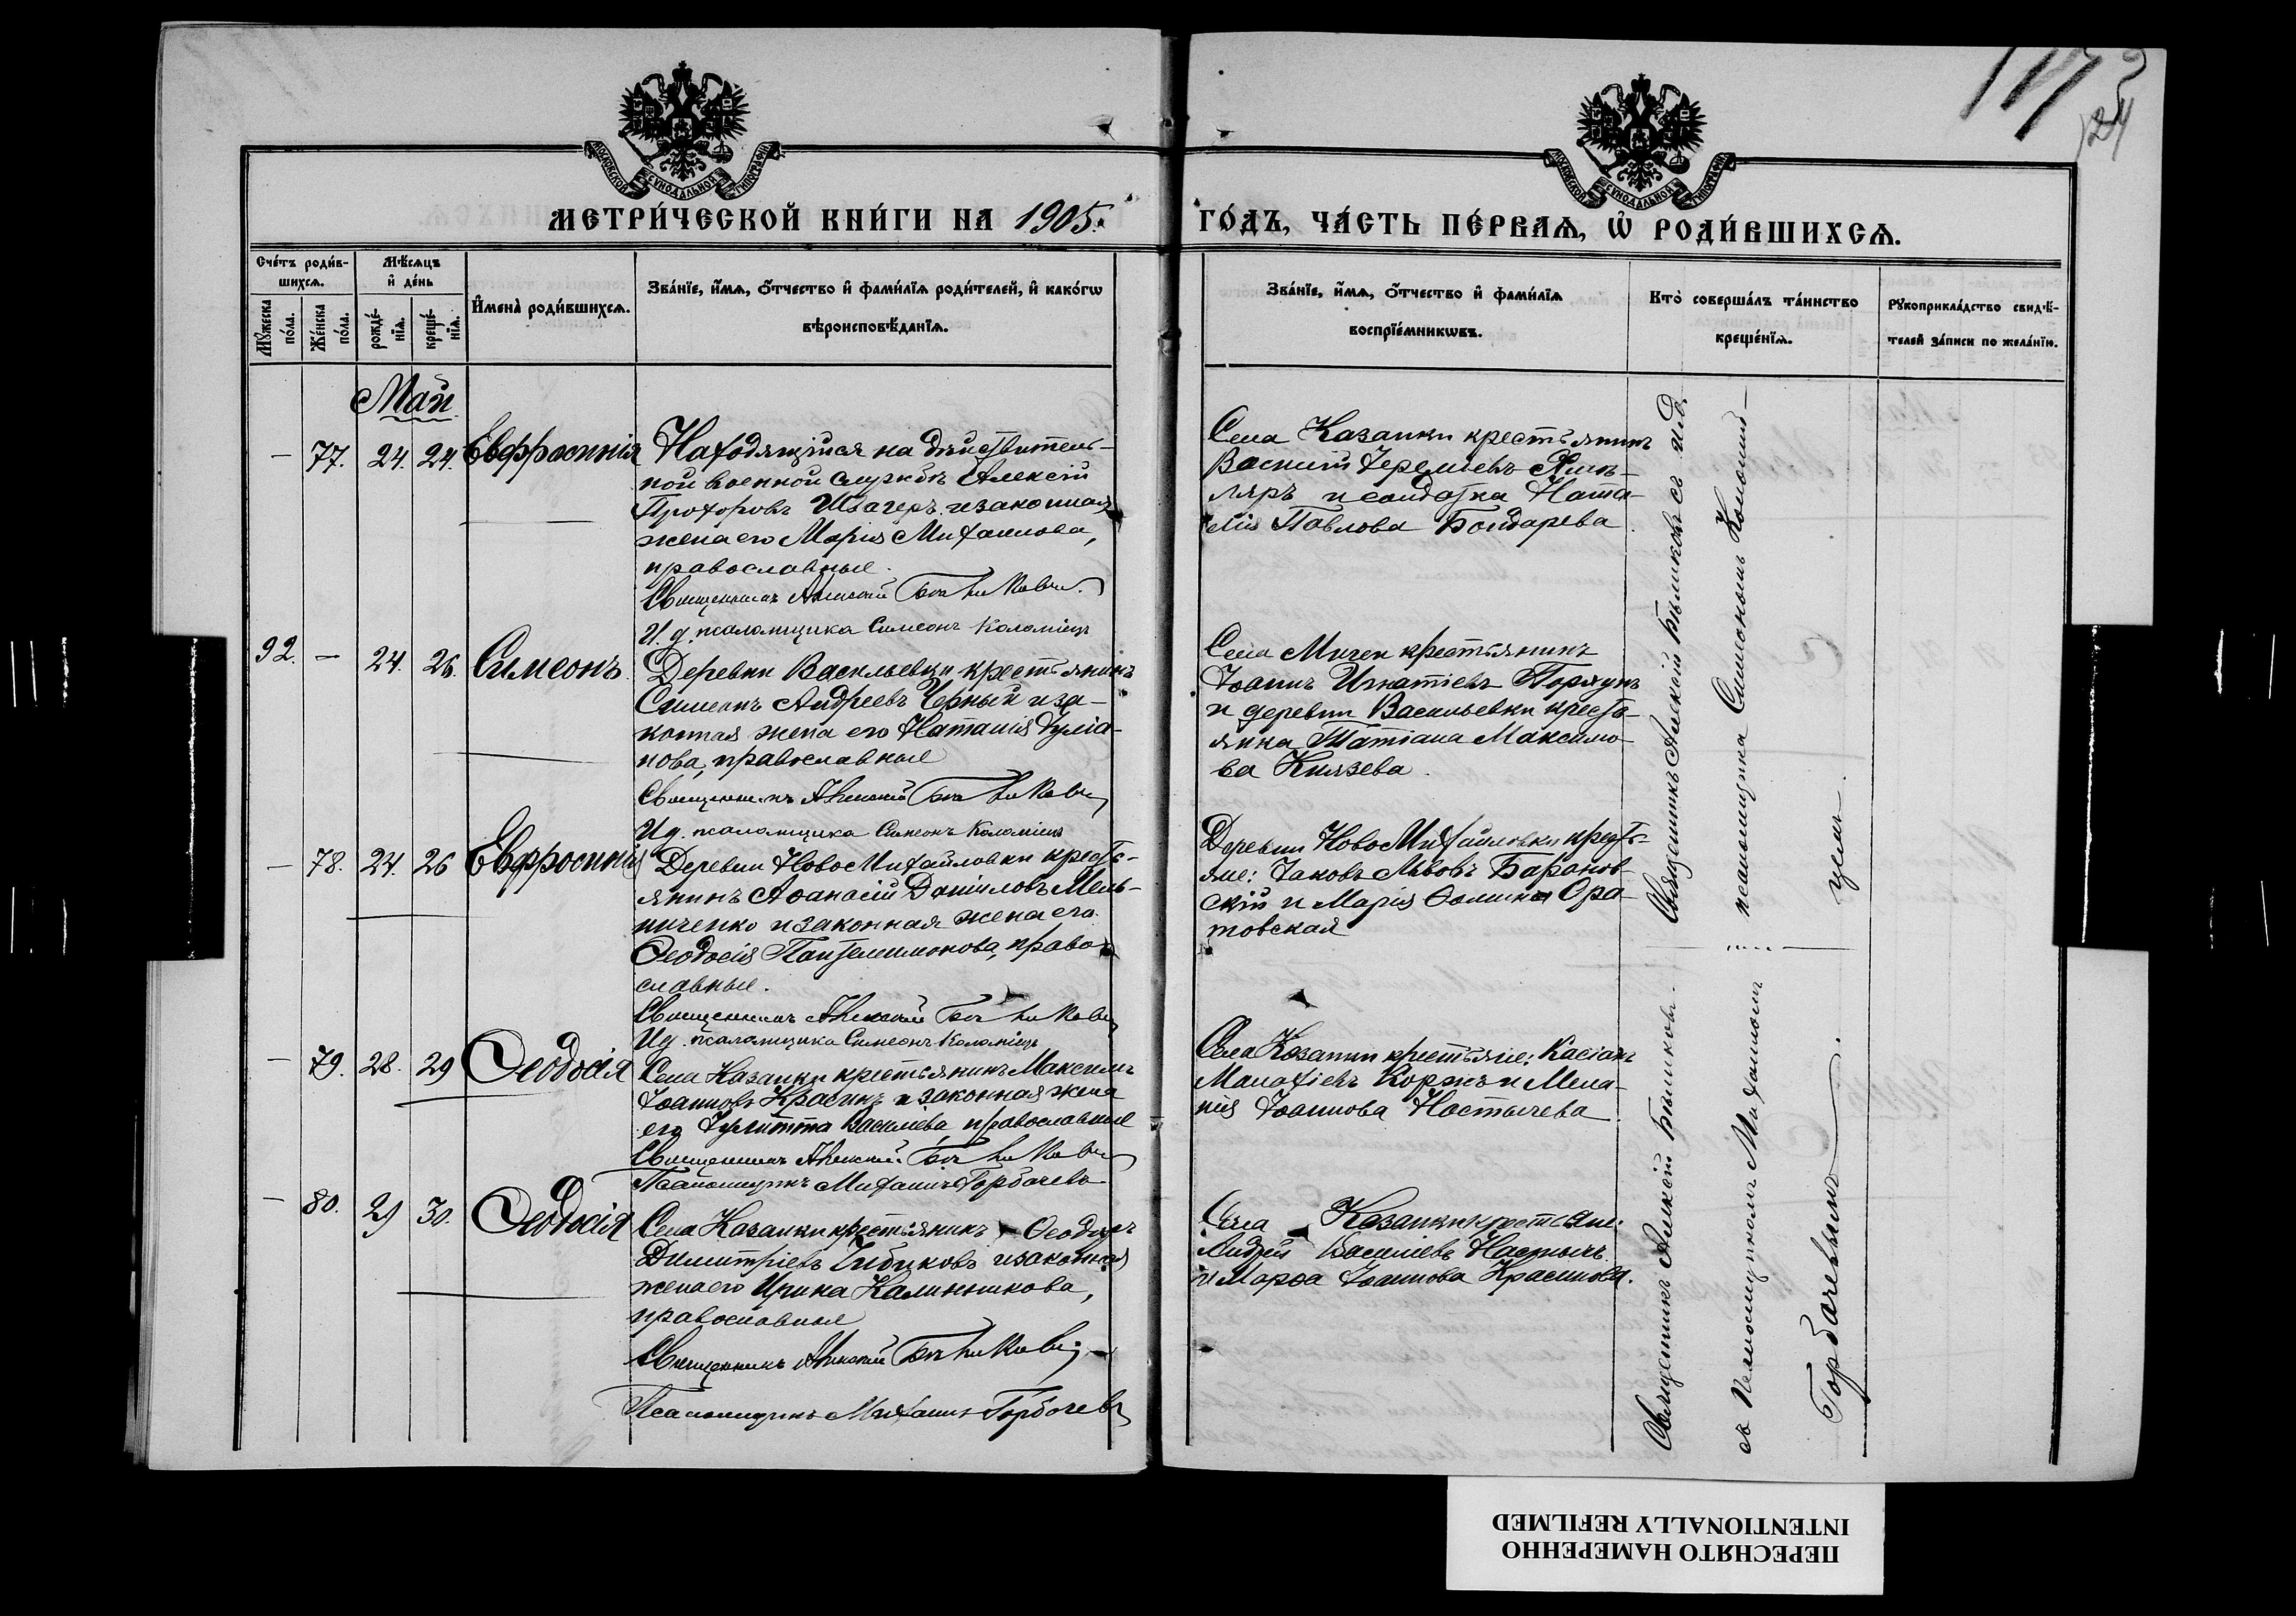 117
124
МОСКОВСКОЙ СѴНОДАЛЬНОЙ ТИПОГРАФІИ
МОСКОВСКОЙ СѴНОДАЛЬНОЙ ТИПОГРАФІИ
МЕТРИ́ЧЕСКОЙ КНИ́ГИ НА 1905.
ГО́ДЪ, ЧА́СТЬ ПЕ́РВАѦ, Ѽ РОДИ́ВШИХСѦ.
Сче́тъ роди́в-
шихсѧ.
Мꙋ́жеска по́ла.
Же́нска по́ла.
Мѣ́сѧцъ
и҆ де́нь
рожде́-
нїѧ.
креще́-
нїѧ.
И҆мена̀ роди́вшихсѧ.
Зва́нїе, и҆́мѧ, ѻ҆́тчество и҆ фами́лїѧ роди́телей, и҆ како́гѡ
вѣроисповѣ́данїѧ.
Зва́нїе, и҆́мѧ, ѻ҆́тчество и҆ фами́лїѧ
воспрїе́мникѡвъ.
Кто̀ соверша́лъ та́инство
креще́нїѧ.
Рꙋкоприкла́дство свидѣ́-
телей за́писи по жела́нїю.
Май
— 77. 24. 24. Евфросинія
Находящійся на дѣйствитель-
ной военной службѣ Алексій
Прохоровъ Швагеръ и законная
жена его Марія Михаилова,
православные.
Священникъ Алексій
И. д. псаломщика Симеонъ Коломіецъ
Села Казанки крестьянинъ
Василій Іереміевъ
и солдатка Ната-
лія Павлова Бондарева
92. — 24. 26. Симеонъ
Деревни Васильевки крестьянинъ
Симеонъ Андреевъ Черный и за-
конная жена его Наталія Іуліа-
нова, православные
Священникъ Алексій
И. д. псаломщика Симеонъ Коломіецъ
Села крестьянинъ
Іоаннъ Игнатіевъ
и деревни Васильевки кресть-
янка Татіана Максимо-
ва Князева.
— 78. 24. 26 Евфросинія
Деревни НовоМихайловки кресть-
янинъ Аѳанасій Даніиловъ Мель-
ниченко и законная жена его
Ѳеодосія Пантелеимонова, право-
славные.
Священникъ Алексій
И. д. псаломщика Симеонъ Коломіецъ
Деревни НовоМихайловки кресть-
яне: Іаковъ Львовъ Баранов-
скій и Марія Ѳомина Ора-
товская
— 79. 28. 29 Ѳеодосія
Села Казанки крестьянинъ Максимъ
Іоанновъ Красинъ и законная жена
его Іулитта Василіева, православные
Священникъ Алексій
Псаломщикъ Михаилъ Горбачевъ
Села Казанки крестьяне: Касіанъ
Малахіевъ Коржъ и Мела-
нія Іоаннова Настычева.
— 80. 29 30. Ѳеодосія
Села Казанки крестьянинъ Ѳеодоръ
Димитріевъ Чибиковъ и законная
жена его Ирина Калинникова,
православные
Священникъ Алексій
Псаломщикъ Михаилъ Горбачевъ
Села Казанки крестьяне:
Андрей Василіевъ Настычъ
и Марѳа Іоаннова Красинова.
Священникъ Алексій съ и. д.
псаломщика Симеономъ Коломій-
цемъ.
Священникъ Алексій
съ псаломщикомъ Михаиломъ
Горбачевымъ.
ПЕРЕСНЯТО НАМЕРЕННО
INTENTIONALLY REFILMED